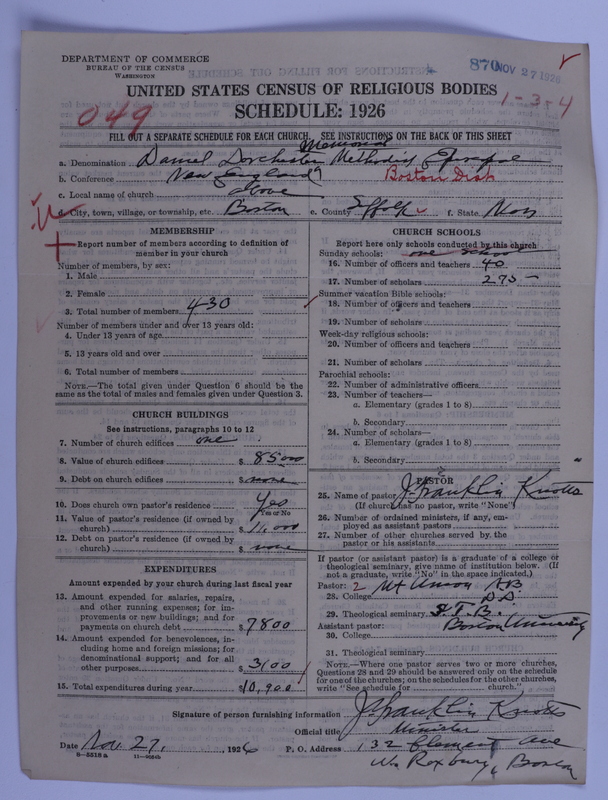 DEPARTMENT OF COMMERCE
BUREAU OF THE CENSUS
WASHINGTON
870 NOV 27 1926
UNITED STATES CENSUS OF RELIGIOUS BODIES
1-3-4
SCHEDULE: 1926
049
FILL OUT A SEPARATE SCHEDULE FOR EACH CHURCH. SEE INSTRUCTIONS ON THE BACK OF THIS SHEET
Memorial
a. Denomination Daniel Dorchester Methodist Episcopal
b. Conference New England Boston Dist
c. Local name of church above
d. City, town, village, or township, etc. Boston e. County Suffolk f. State Mass
MEMBERSHIP
Report number of members according to definition of
member in your church
Number of members, by sex:
1. Male
2. Female
3. Total number of members 430
Number of members under and over 13 years old:
4. Under 13 years of age
5. 13 years old and over
6. Total number of members
NOTE.—The total given under Question 6 should be
same as the total of males and females given under Question 3.
CHURCH BUILDINGS
See instructions, paragraphs 10 to 12
7. Number of church edifices one
8. Value of church edifices $ 85000
9. Debt on church edifices $ none
10. Does church own pastor's residence Yes
Yes or No
11. Value of pastor's residence (if owned by
church) $ 11,000
12. Debt on pastor's residence (if owned by
church) $ none
EXPENDITURES
Amount expended by your church during last fiscal year
13. Amount expended for salaries, repairs,
and other running expenses; for im-
provements or new buildings; and for
payments on church debt $ 7800
14. Amount expended for benevolences, in-
cluding home and foreign missions; for
denominational support; and for all
other purposes $ 3100
15. Total expenditures during year $ 10,900
CHURCH SCHOOLS
Report here only schools conducted by this church
Sunday schools: one school
16. Number of officers and teachers 40
17. Number of scholars 275 —
Summer vacation Bible schools:
18. Number of officers and teachers
19. Number of scholars
Week-day religious schools:
20. Number of officers and teachers
21. Number of scholars
Parochial schools:
22. Number of administrative officers
23. Number of teachers—
a. Elementary (grades 1 to 8)
b. Secondary
24. Number of scholars—
a. Elementary (grades 1 to 8)
b. Secondary
PASTOR
25. Name of pastor J. Franklin Knotts
(If church has no pastor, write "None")
26. Number of ordained ministers, if any, em-
ployed as assistant pastors
27. Number of other churches served by the
pastor or his assistants
If pastor (or assistant pastor) is a graduate of a college or
theological seminary, give name of institution below. (If
not a graduate, write "No" in the space indicated.)
Pastor: 2 Mt Union A.B.
28. College D.D.
29. Theological seminary S.T.B.
Assistant pastor: Boston University
30. College
31. Theological seminary
NOTE.—Where one pastor serves two or more churches,
Questions 28 and 29 should be answered only on the schedule
for one of the churches; on the schedules for the other churches,
write "See schedule for church."
Signature of person furnishing information J. Franklin Knotts
Official title Minister
Date Nov. 27, 1926 P. O. Address 132 Clement Ave
8—5518 a 11—9554b
W. Roxbury, Boston